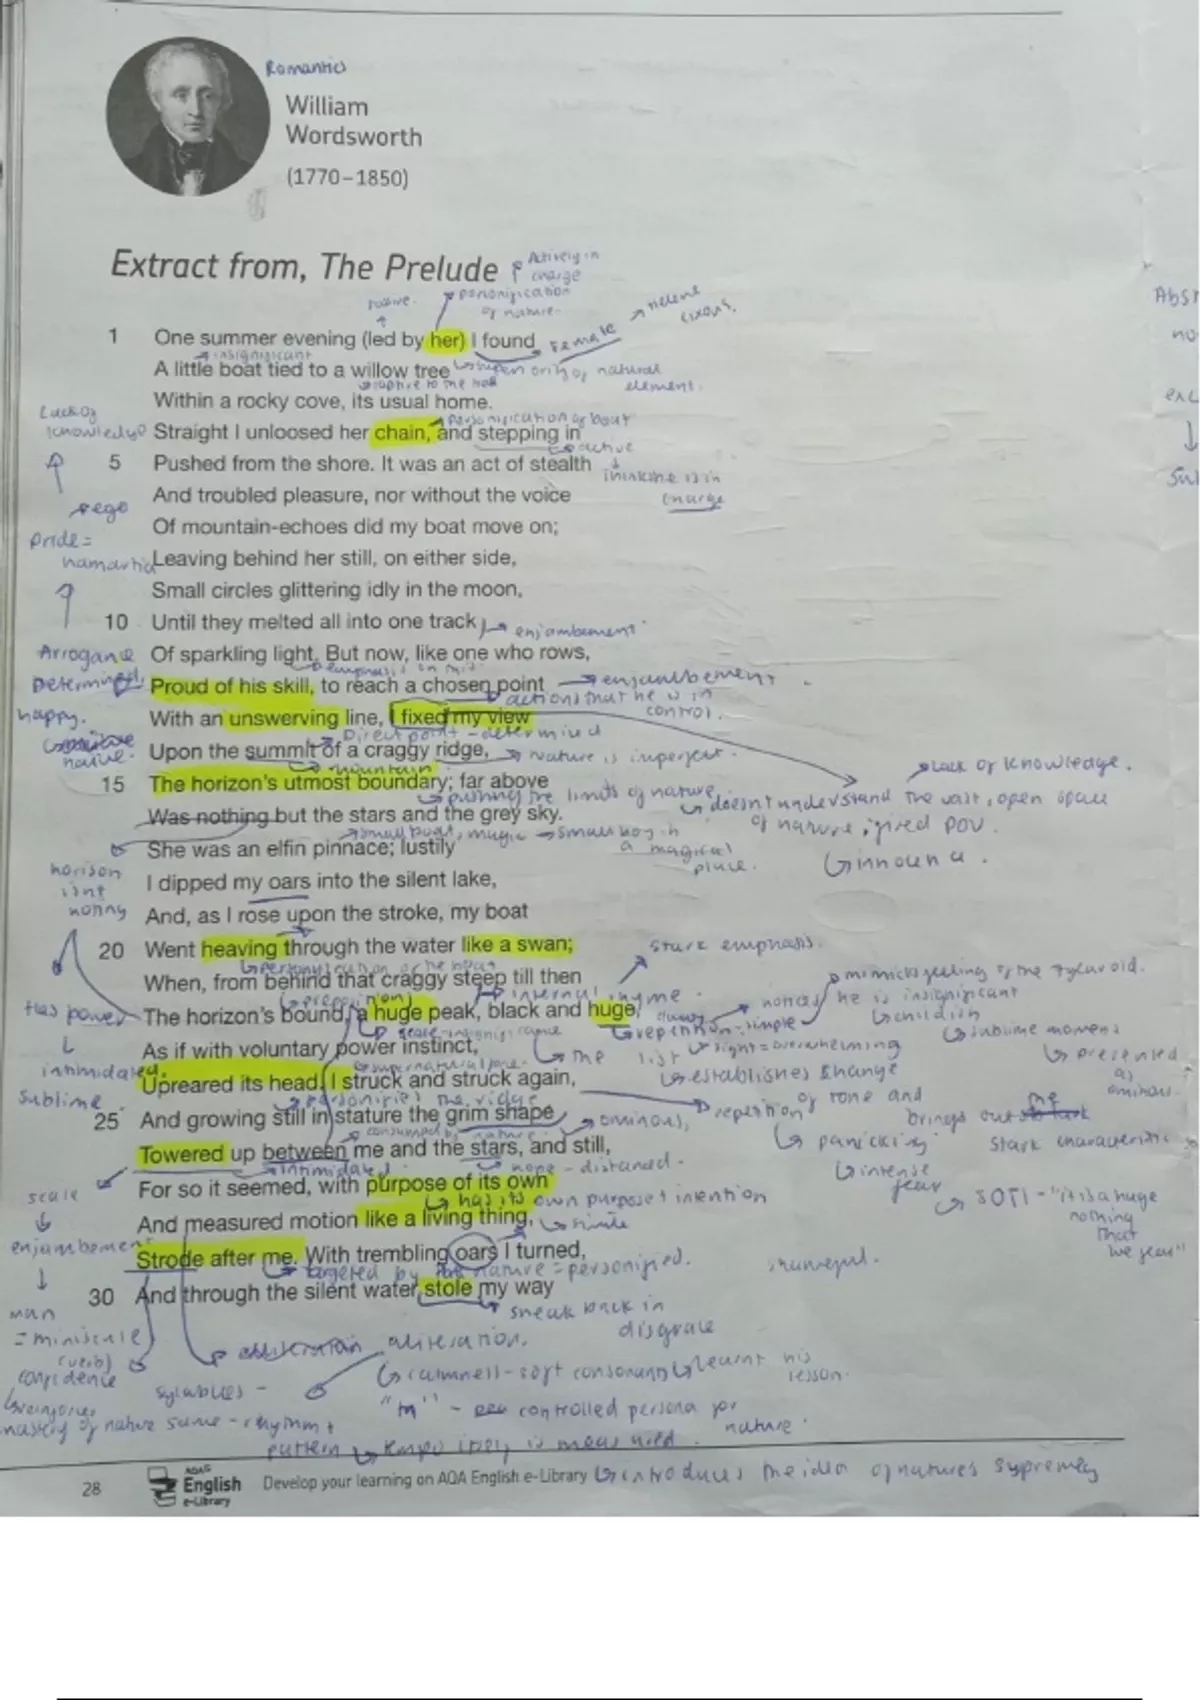 Romantics
William
Wordsworth
(1770–1850)
Extract from, The Prelude
Actively in
charge
personification
of nature.
passive.
female
1 One summer evening (led by her) I found
insignificant
A little boat tied to a willow tree
of natural
element.
Within a rocky cove, its usual home.
personification of boat
Lack of
knowledge
Straight I unloosed her chain, and stepping in
active
5 Pushed from the shore. It was an act of stealth
thinks he is in
charge
And troubled pleasure, nor without the voice
ego
Of mountain-echoes did my boat move on;
pride =
hamartia
Leaving behind her still, on either side,
Small circles glittering idly in the moon,
10 Until they melted all into one track
enjambement
Arrogance
Of sparkling light. But now, like one who rows,
emphasis on
Determined,
Proud of his skill, to reach a chosen point
enjambement
actions that he is in
control.
happy.
With an unswerving line, I fixed my view
Direct point - determined
native.
Upon the summit of a craggy ridge,
nature is imperfect.
mountain
lack of knowledge.
15 The horizon's utmost boundary; far above
pushing the limits of nature
doesn't understand the vast, open space
of nature
POV.
innocence.
Was nothing but the stars and the grey sky.
small boat, magic
small boy in
a magical
place.
She was an elfin pinnace; lustily
horison
isnt
nothing
I dipped my oars into the silent lake,
And, as I rose upon the stroke, my boat
20 Went heaving through the water like a swan;
stark emphasis.
personification of the boat
When, from behind that craggy steep till then
mimics feeling of the 7 year old.
(preposition)
internal rhyme
notices he is insignificant
childish
Has power
The horizon's bound, a huge peak, black and huge,
repetition - simple
sublime moment
presented
as
ominous.
As if with voluntary power instinct,
the list
sight = overwhelming
supernatural
intimidated.
establishes change
of tone and
Upreared its head. I struck and struck again,
personifies the ridge
sublime
repetition
brings out the
stark characteristic
25 And growing still in stature the grim shape
ominous,
panicking
consumed by nature
Towered up between me and the stars, and still,
intimidated.
hope - distanced.
intense
fear
scale
For so it seemed, with purpose of its own
has its own purpose + intention
SOTI - "it is a huge
nothing
that
we fear"
And measured motion like a living thing,
simile
enjambement
Strode after me. With trembling oars I turned,
targeted by nature = personified.
30 And through the silent water stole my way
sneak back in
disgrace
man
= miniscule
(verb)
confidence
aliteration.
calmness - soft consonants
learnt his
lesson.
mastery of nature
sylables -
same - rhythm +
pattern
"m" - controlled persona for
nature.
is measured.
28
AQA
English
e-Library
Develop your learning on AQA English e-Library
introduces the idea of natures supremecy